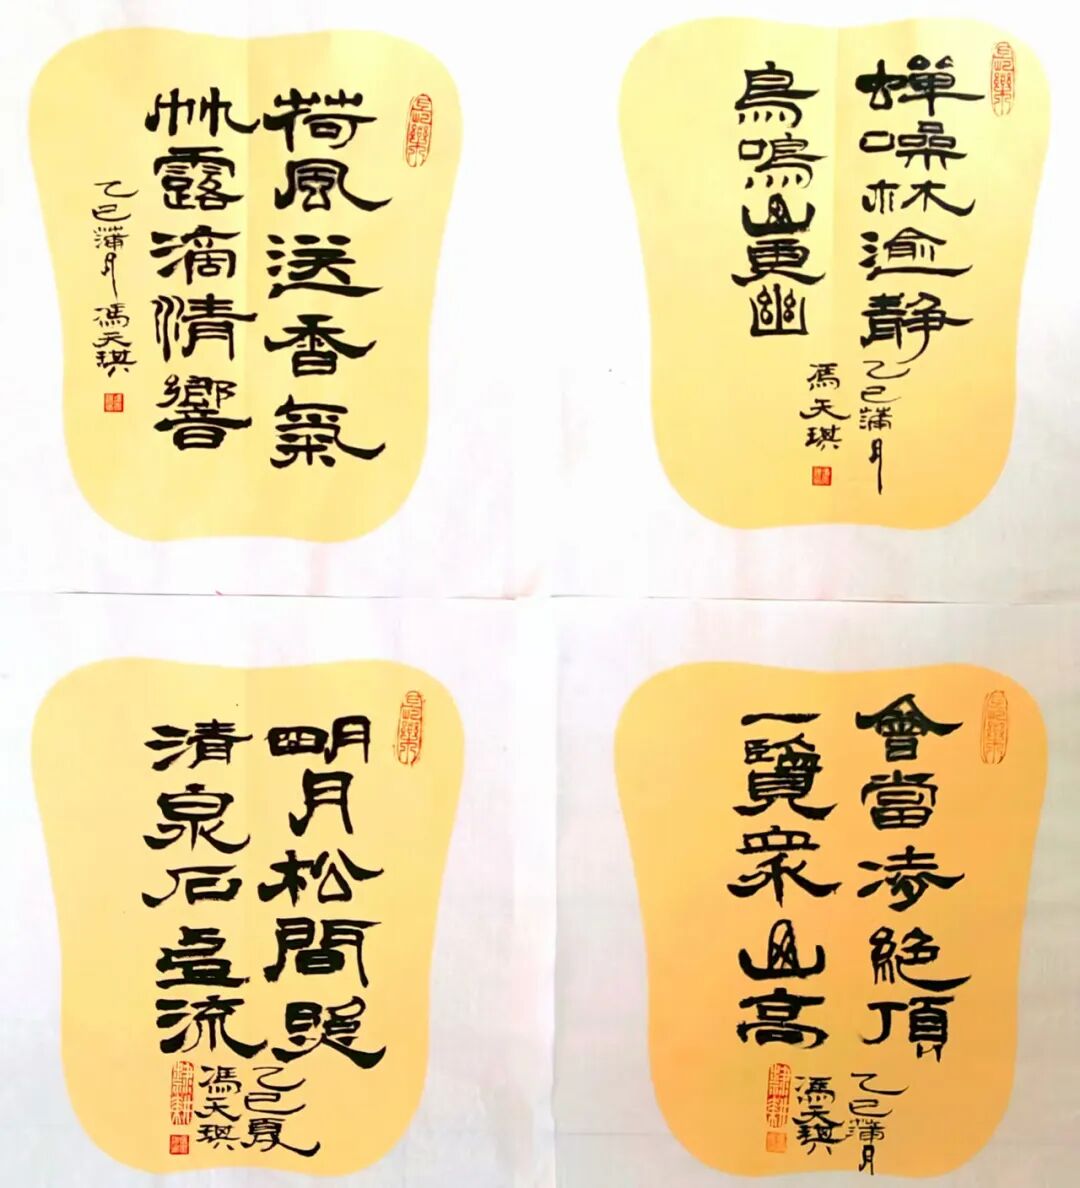 荷風送香氣
竹露滴清響
乙巳蒲月 馮天琪
蝉噪林逾静
鳥鳴山更幽
乙巳蒲月
馮天琪
明月松間照
清泉石上流
乙巳夏
馮天琪
會當凌絶頂
一覽衆山高
乙巳蒲月
馮天琪